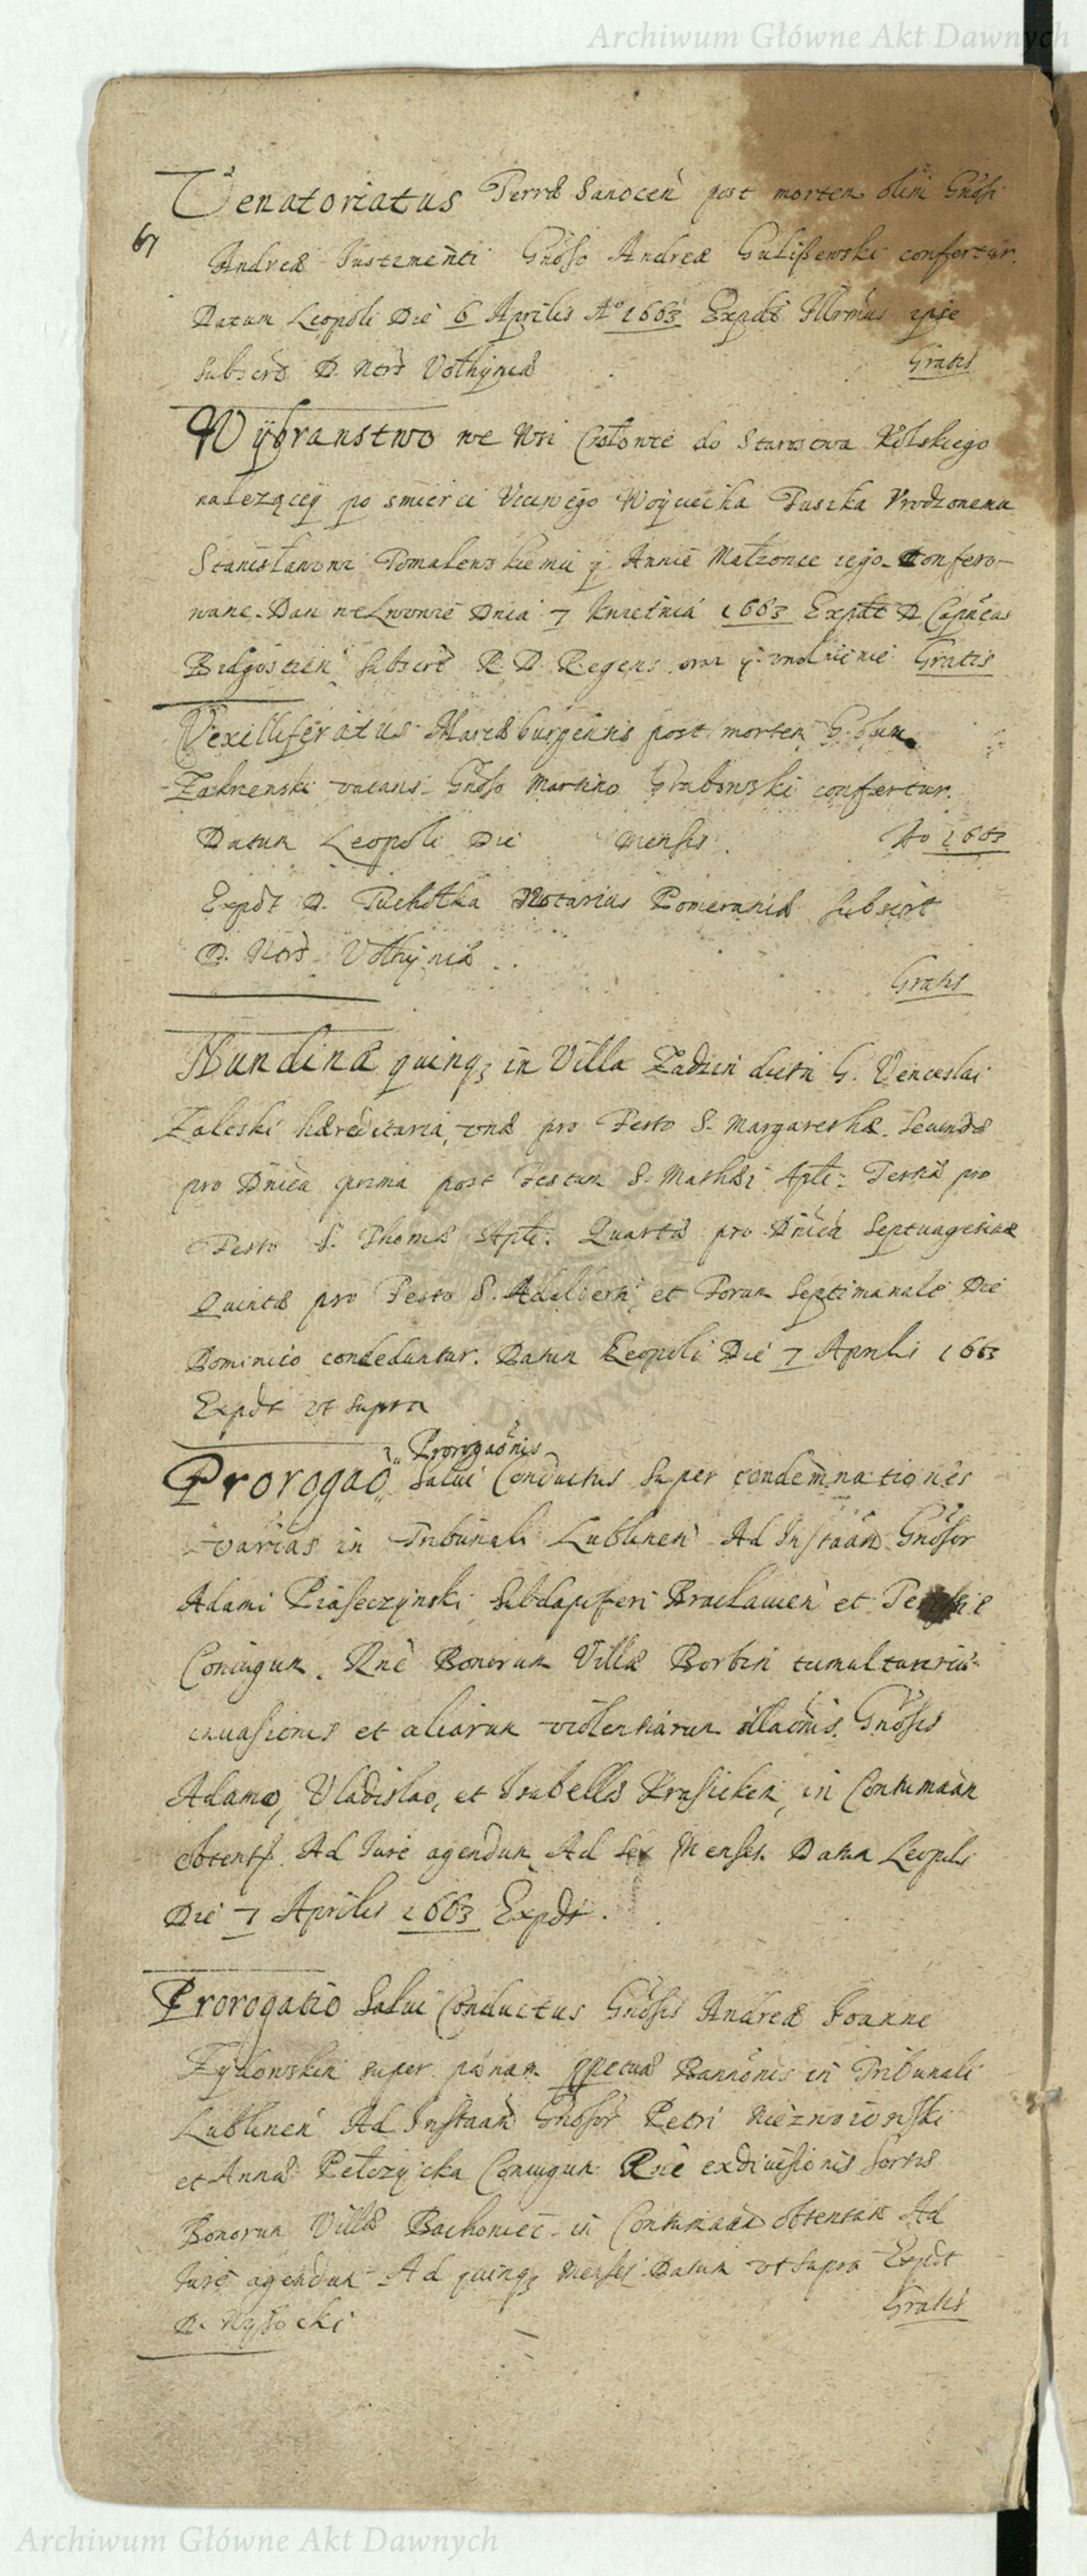 Archiwum Główne Akt Dawnych
Venatoriatus Terræ Sanocen post mortem olim Gnosi
67
Andreæ Gnoso Andreæ confertur.
Datum Leopoli Die 6 Aprilis Ao 1663 Expdt Illrmus ipse
Subscrt D. Notrs Volhyniæ Gratis
Wybranstwo we Wsi do Starostwa Kolskiego
nalezącey po smierci Vczciwego Woyciecha Puszka Vrodzonemu
Stanisławowi y Annie Małzonce iego. Confero-
wane. Dan we Lwowie Dnia 7 Kwietnia 1663 Expdt D. Capneus
Bidgostien Subscrt R. D. Regens. Gratis
Vexilliferatus Mareæburgensis post mortem G. olim
Zakrzenski vacans. Gnoso Martino Grabowski confertur.
Datum Leopoli Die Mensis Ao 1663
Expdt D. Tucholka Notarius Pomeraniæ Subscrt
D. Notrs Volhyniæ
Gratis
Nundinæ quinq3 in Villa Zadzin dicta G. Venceslai
Zaleski hæreditaria, vna pro Festo S. Margarethæ. Secundæ
pro Dnica prima post Festum S. Mathæi Apli. Tertiæ pro
Festo S. Thomæ Apli. Quartæ pro Dnica Septuagesimæ
Quintæ pro Festo S. Adalberti et Forum Septimanale Die
Dominico conceduntur. Datum Leopoli Die 7 Aprilis 1663
Expdt vt supra
Prorogaonis
Prorogao Salui Conductus Super condemnationes
varias in Tribunali Lublinen Ad Instaan Gnosor
Adami Piaseczynski Subdapiferi Braclauien et
Coniugum. Rne Bonorum Villæ Borbin tumultuariæ
inuasionis et aliarum violentiarum illaonis. Gnosis
Adamo, Vladislao, et Isabellæ Krasicken in Contumaan
obtent. Ad Iure agendum Ad Sex Menses. Datum Leopoli
Die 7 Aprilis 1663 Expdt.
Prorogatio Salui Conductus Gnosis Andreæ Joanne
Zydowskin super pænam ppetuæ Bannonis in Tribunali
Lublinen Ad Instaan Gnosor Petri
et Annæ Pełczycka Coniugum Rne exdiuisionis sortis
Bonorum Villæ Bachoniec in Contumaan obtentam Ad
Iure agendum Ad quinq3 Menses. Datum vt supra Expdt
D. Wysocki Gratis
Archiwum Główne Akt Dawnych